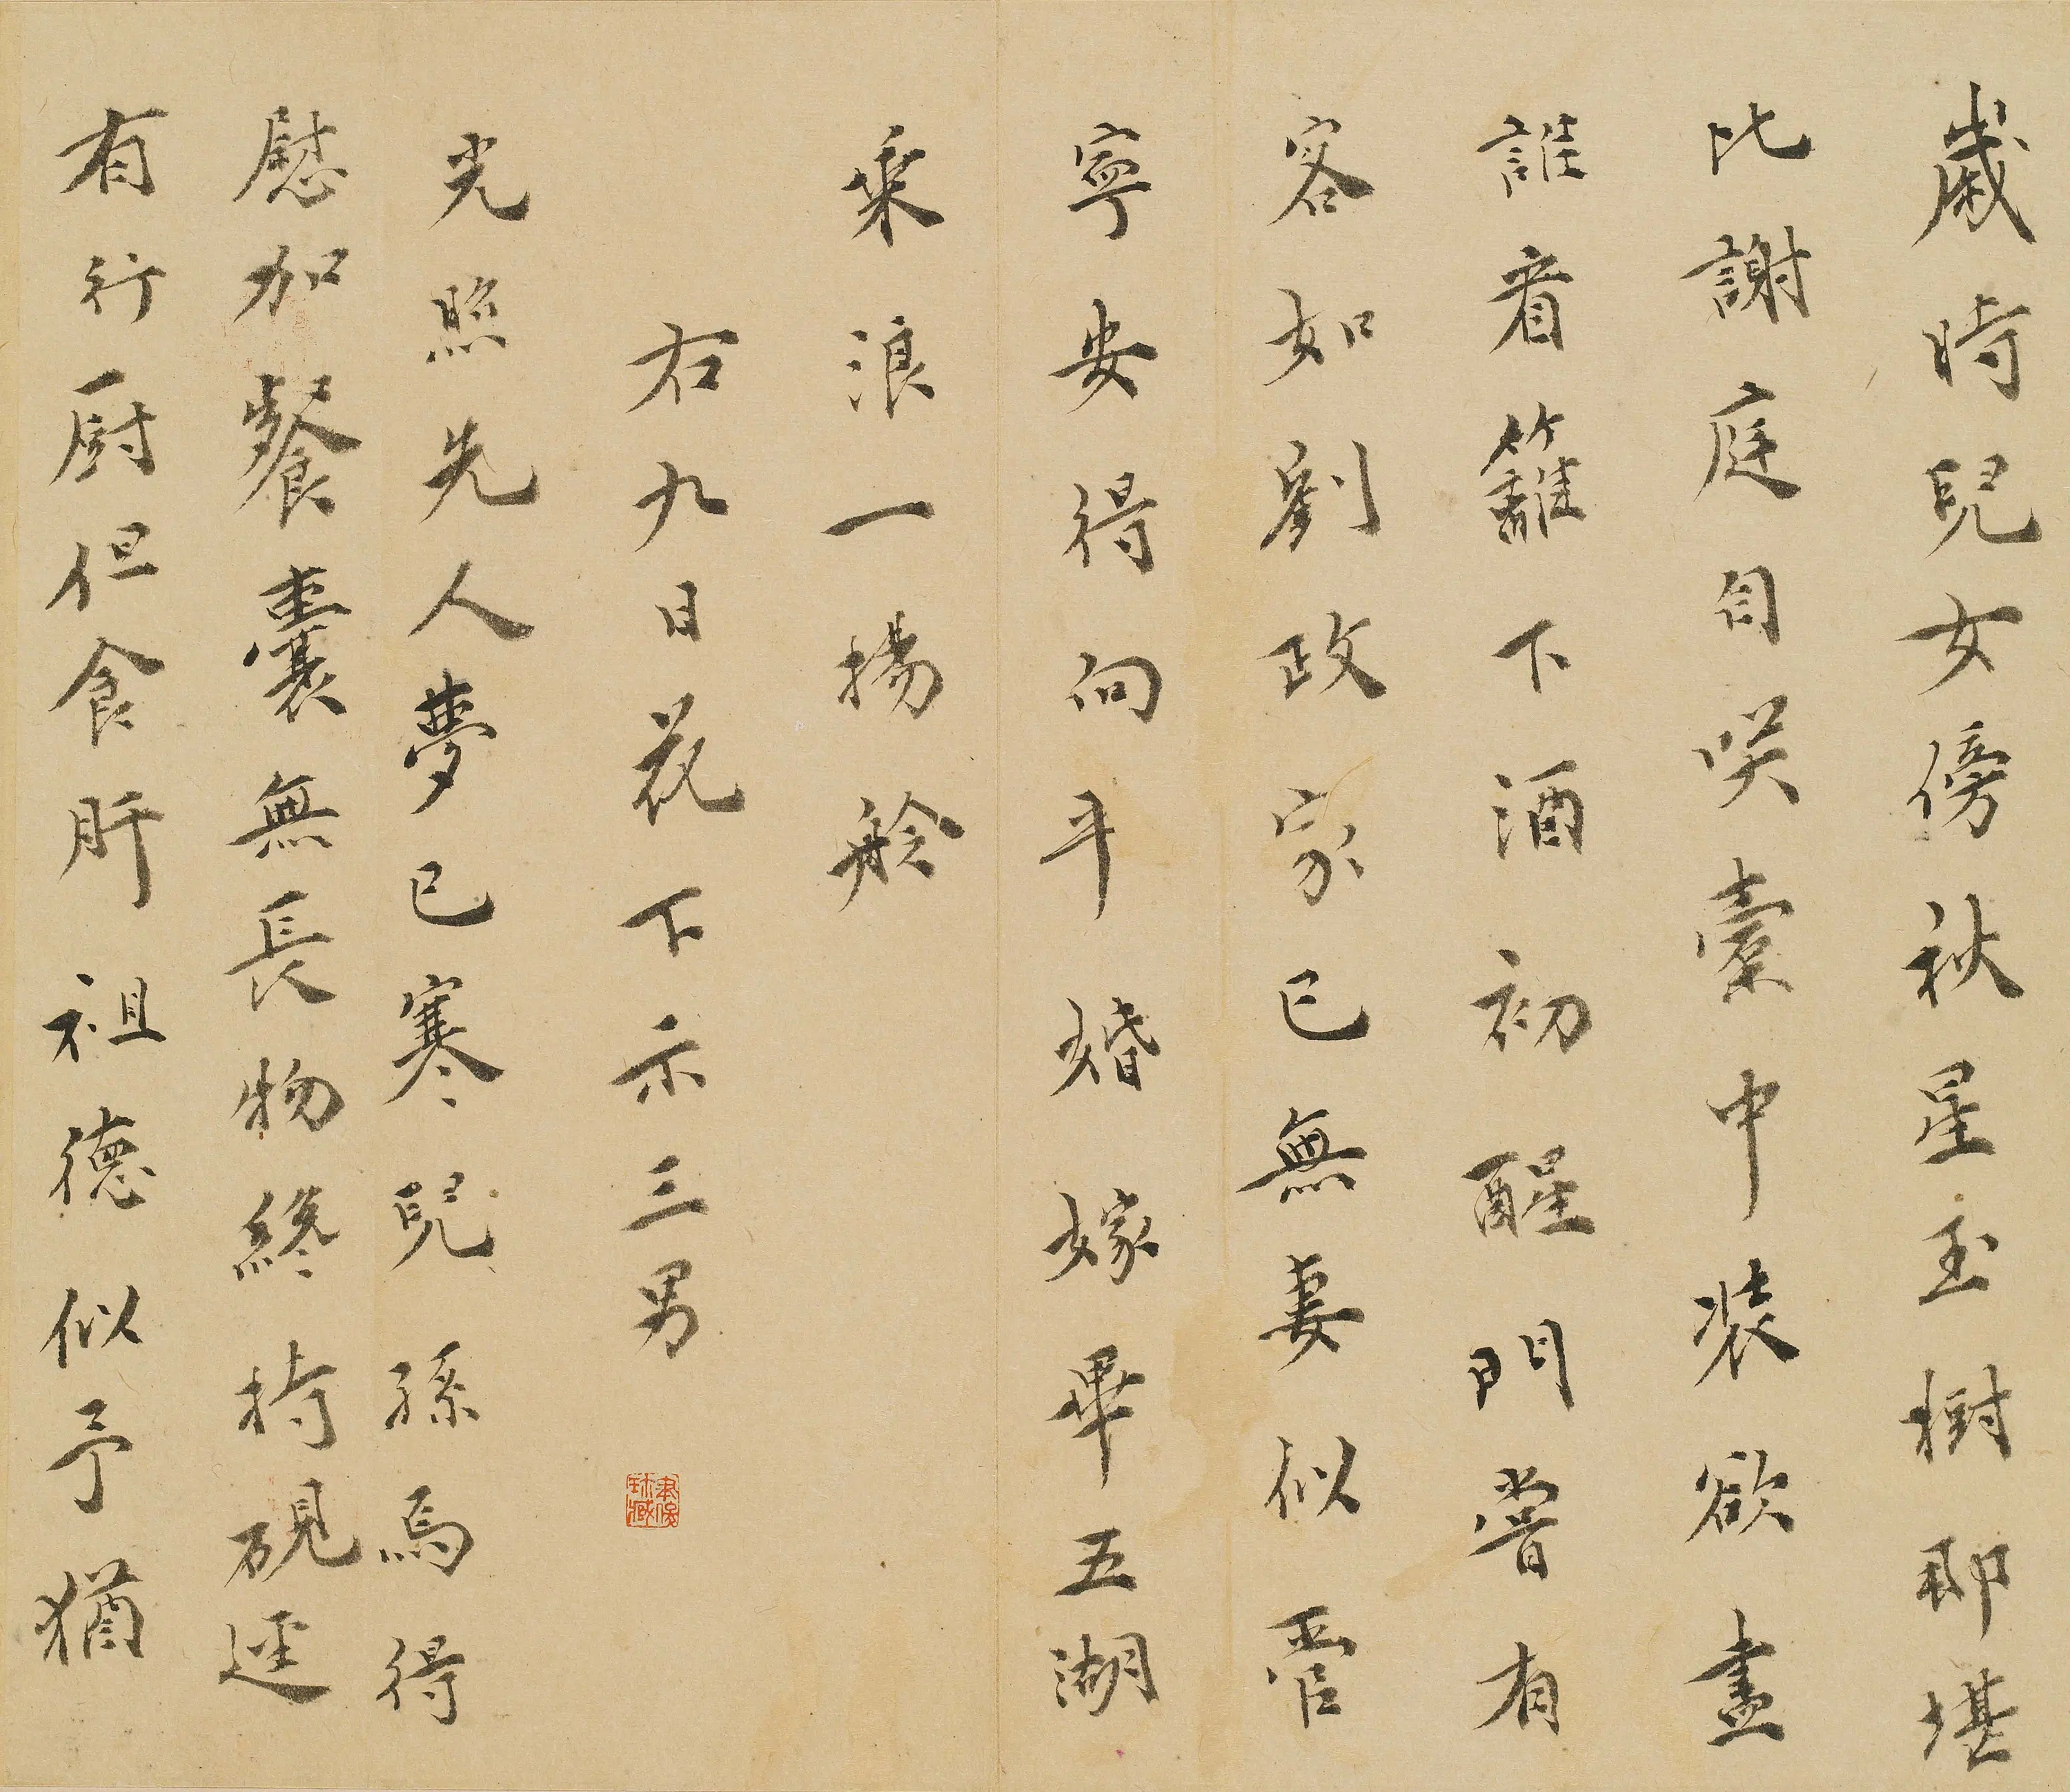 歲時兒女傍秋星玉樹即堪
比謝庭自笑橐中裝欲盡
誰看籬下酒初醒門嘗有
客如劉政家已無妻似管
寧安得向平婚嫁畢五湖
乘浪一揚舲
右九日花下示三男
光照先人夢已寒兒孫焉得
慰加餐囊無長物終持硯逕
有行廚但食肝祖德似予猶